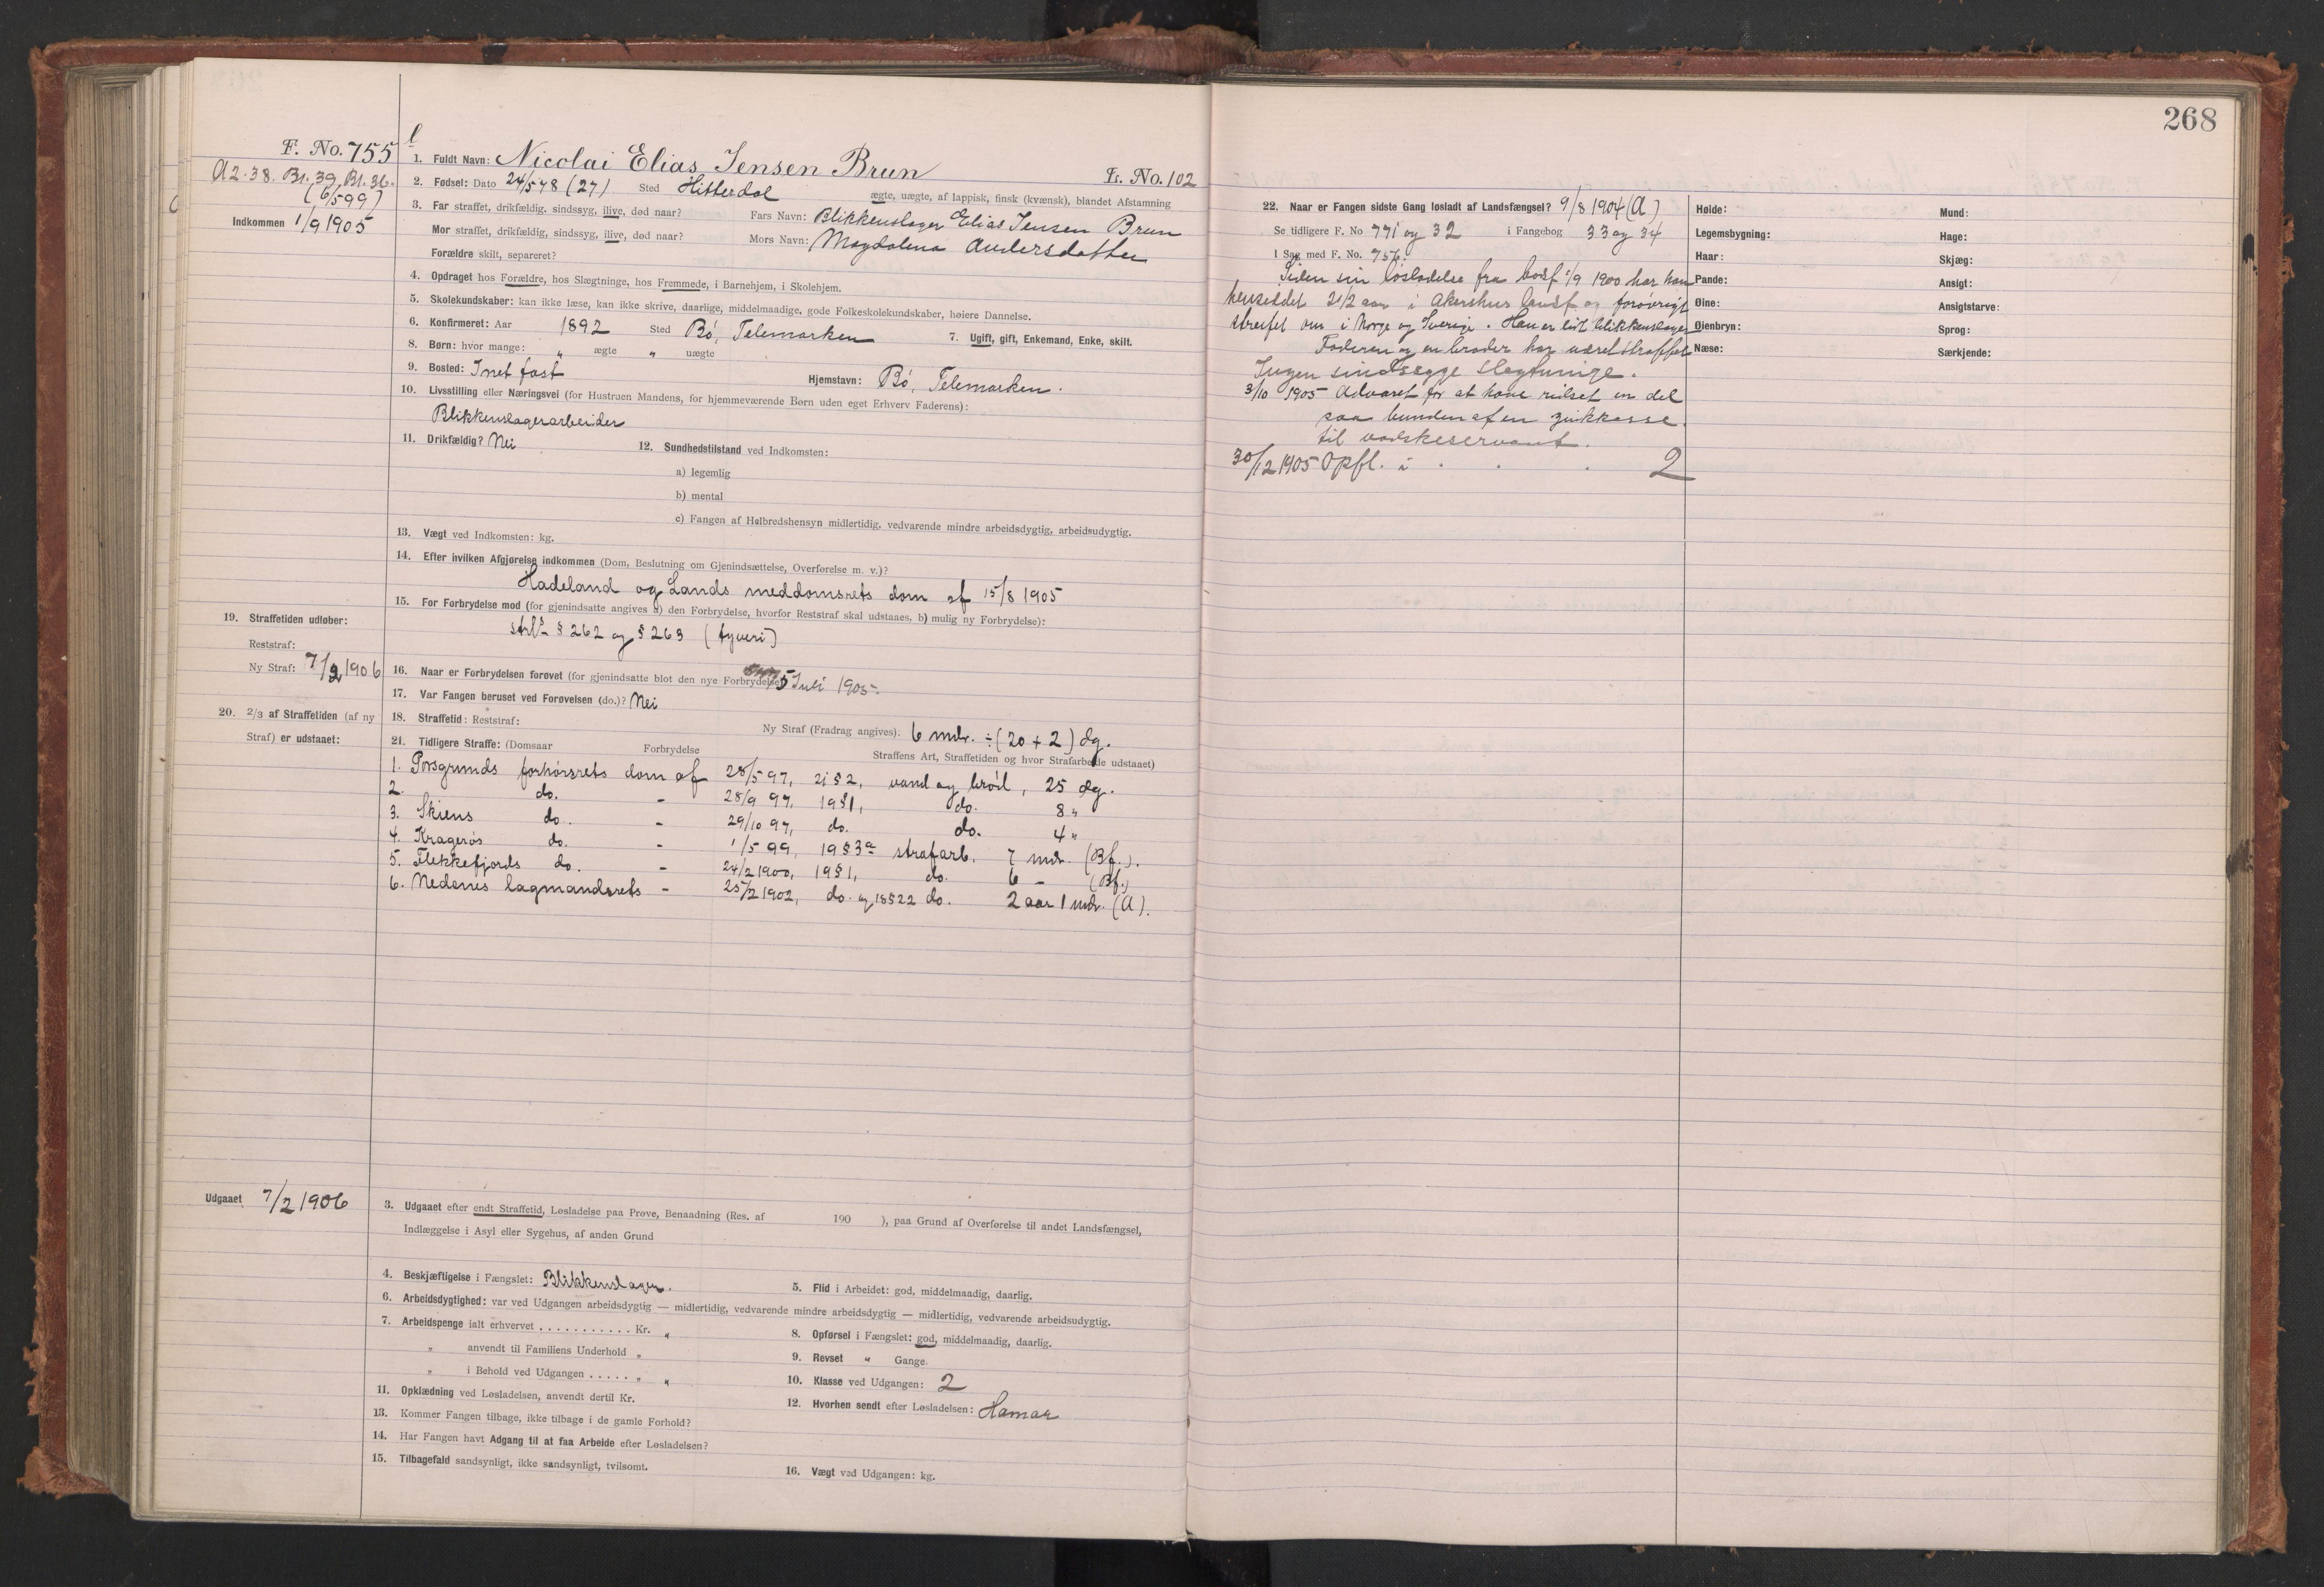 F. No. 755
A 2. 38. Bl. 39, Bl. 36.
(6/5 99)
Indkommen 1/9 1905
1. Fuldt Navn: Nicolai Elias Jensen Brun L. No. 102
2. Fødsel: Dato 24/5 78 (27) Sted Hitterdal ægte, uægte, af lappisk, finsk (kvænsk), blandet Afstamning
3. Far straffet, drikfældig, sindssyg, ilive, død naar? Fars Navn: Blikkenslager Elias Jensen Brun
Mor straffet, drikfældig, sindssyg, ilive, død naar? Mors Navn: Magdalena Andersdatter
Forældre skilt, separeret?
4. Opdraget hos Forældre, hos Slægtninge, hos Fremmede, i Barnehjem, i Skolehjem.
5. Skolekundskaber: kan ikke læse, kan ikke skrive, daarlige, middelmaadige, gode Folkeskolekundskaber, høiere Dannelse.
6. Konfirmeret: Aar 1892 Sted Bø, Telemarken 7. Ugift, gift, Enkemand, Enke, skilt.
8. Børn: hvor mange: „ ægte „ uægte
9. Bosted: Intet fast Hjemstavn: Bø, Telemarken.
10. Livsstilling eller Næringsvei (for Hustruen Mandens, for hjemmeværende Børn uden eget Erhverv Faderens):
Blikkenslagerarbeider
11. Drikfældig? Nei 12. Sundhedstilstand ved Indkomsten:
a) legemlig
b) mental
c) Fangen af Helbredshensyn midlertidig, vedvarende mindre arbeidsdygtig, arbeidsudygtig.
13. Vægt ved Indkomsten: kg.
14. Efter hvilken Afgjørelse indkommen (Dom, Beslutning om Gjenindsættelse, Overførelse m. v.)?
Hadeland og Lands meddomsrets dom af 15/8 1905
15. For Forbrydelse mod (for gjenindsatte angives a) den Forbrydelse, hvorfor Reststraf skal udstaaes, b) mulig ny Forbrydelse):
strl. § 262 og § 263 (tyveri)
19. Straffetiden udløber:
Reststraf:
Ny Straf: 7/2 1906
16. Naar er Forbrydelsen forøvet (for gjenindsatte blot den nye Forbrydelse) 5 Juli 1905.
17. Var Fangen beruset ved Forøvelsen (do.)? Nei
20. 2/3 af Straffetiden (af ny
Straf) er udstaaet:
18. Straffetid: Reststraf: Ny Straf (Fradrag angives): 6 mdr. ÷ (20 + 2) dg.
21. Tidligere Straffe: (Domsaar Forbrydelse Straffens Art, Straffetiden og hvor Strafarbeide udstaaet)
1. Porsgrunds forhørsrets dom af 28/5 97, 21 § 2, vand og brød, 25 dg.
2. do. - 28/9 97, 19 § 1, do. 8 „
3. Skiens do. - 29/10 97, do. do. 4 „
4. Kragerøs do. - 1/5 99, 19 § 3 a strafarb. 7 mdr. (Bf.).
5. Flekkefjords do. - 24/2 1900, 19 § 1, do. 6 - (Bf.)
6. Nedenes lagmandsrets - 25/2 1902, do. og 18 § 22 do. 2 aar 1 mdr. (A).
Udgaaet 7/2 1906
3. Udgaaet efter endt Straffetid, Løsladelse paa Prøve, Benaadning (Res. af 190 ), paa Grund af Overførelse til andet Landsfængsel,
Indlæggelse i Asyl eller Sygehus, af anden Grund
4. Beskjæftigelse i Fængslet: Blikkenslager. 5. Flid i Arbeidet: god, middelmaadig, daarlig.
6. Arbeidsdygtighed: var ved Udgangen arbeidsdygtig — midlertidig, vedvarende mindre arbeidsdygtig — midlertidig, vedvarende arbeidsudygtig.
7. Arbeidspenge ialt erhvervet . . . . . . . . . . . Kr. „ 8. Opførsel i Fængslet: god, middelmaadig, daarlig.
„ anvendt til Familiens Underhold „ 9. Revset „ Gange.
„ i Behold ved Udgangen . . . . . „ „ 10. Klasse ved Udgangen: 2
11. Opklædning ved Løsladelsen, anvendt dertil Kr. 12. Hvorhen sendt efter Løsladelsen: Hamar
13. Kommer Fangen tilbage, ikke tilbage i de gamle Forhold?
14. Har Fangen havt Adgang til at faa Arbeide efter Løsladelsen?
15. Tilbagefald sandsynligt, ikke sandsynligt, tvilsomt. 16. Vægt ved Udgangen: kg.
268
22. Naar er Fangen sidste Gang løsladt af Landsfængsel? 9/8 1904 (A)
Se tidligere F. No 771 og 32 i Fangebog 33 og 34
I Sag med F. No. 756.
Siden sin løsladelse fra bodsf. 1/9 1900 har han
hensiddet 2 1/2 aar i Akershus landsf. og forøvrigt
streifet om i Norge og Sverige. Han er lidt blikkenslager
Faderen og en broder har været straffet
Ingen sindssyge slegtninge.
3/10 1905 Advaret for at have ridset en del
paa bunden af en zinkkasse
til vaskeservant.
30/12 1905 Opfl. i . . . 2
Høide:
Legemsbygning:
Haar:
Pande:
Øine:
Øienbryn:
Næse:
Mund:
Hage:
Skjæg:
Ansigt:
Ansigtstarve:
Sprog:
Særkjende: